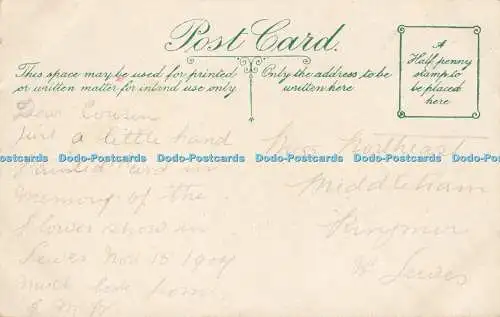 Post Card.
This space may be used for printed
or written matter for inland use only
Only the address to be
written here
A
Half penny
stamp to
be placed
here
Dear Cousin
Just a little hand
painted card in
memory of the
flower show in
Lewes Nov 15 1904
much love from
Miss Northeast
Middleham
Ringmer
Lewes
Dodo-Postcards Dodo-Postcards Dodo-Postcards Dodo-Postcards Dodo-Postcards Dodo-Postcards